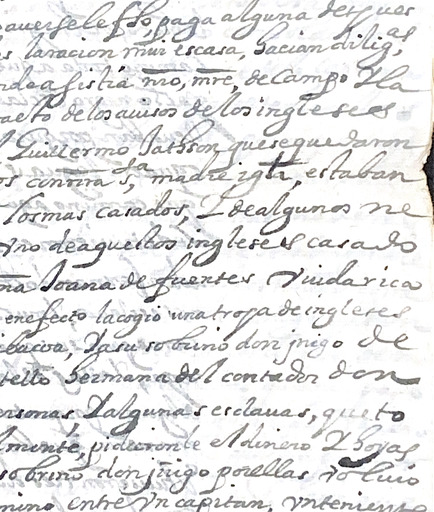 averse le hecho, paga alguna despues
laracion mui escasa, hacian dilig,as
asistia nro, mre, de campo Y la
de los auisos de los ingleses
Guillermo Jathson que se quedaron
contra sta, madre igla, estaban
los mas casados, Y de algunos ne
vno de aquellos ingleses casado
Joana de fuentes viuda rica
en efecto la cogio una tropa de ingleses
Y a su sobrino don jnigo de
hermana del contador don
ersonas, Y algunas esclauas, que to
lmente, pidieronle el dinero Y hoyas
sobrino don jnigo por ellas, voluio
mino entre Vn capitan, Vn teniente